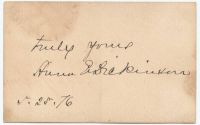 truly yours
Anna E Dickinson
5. 25. 76